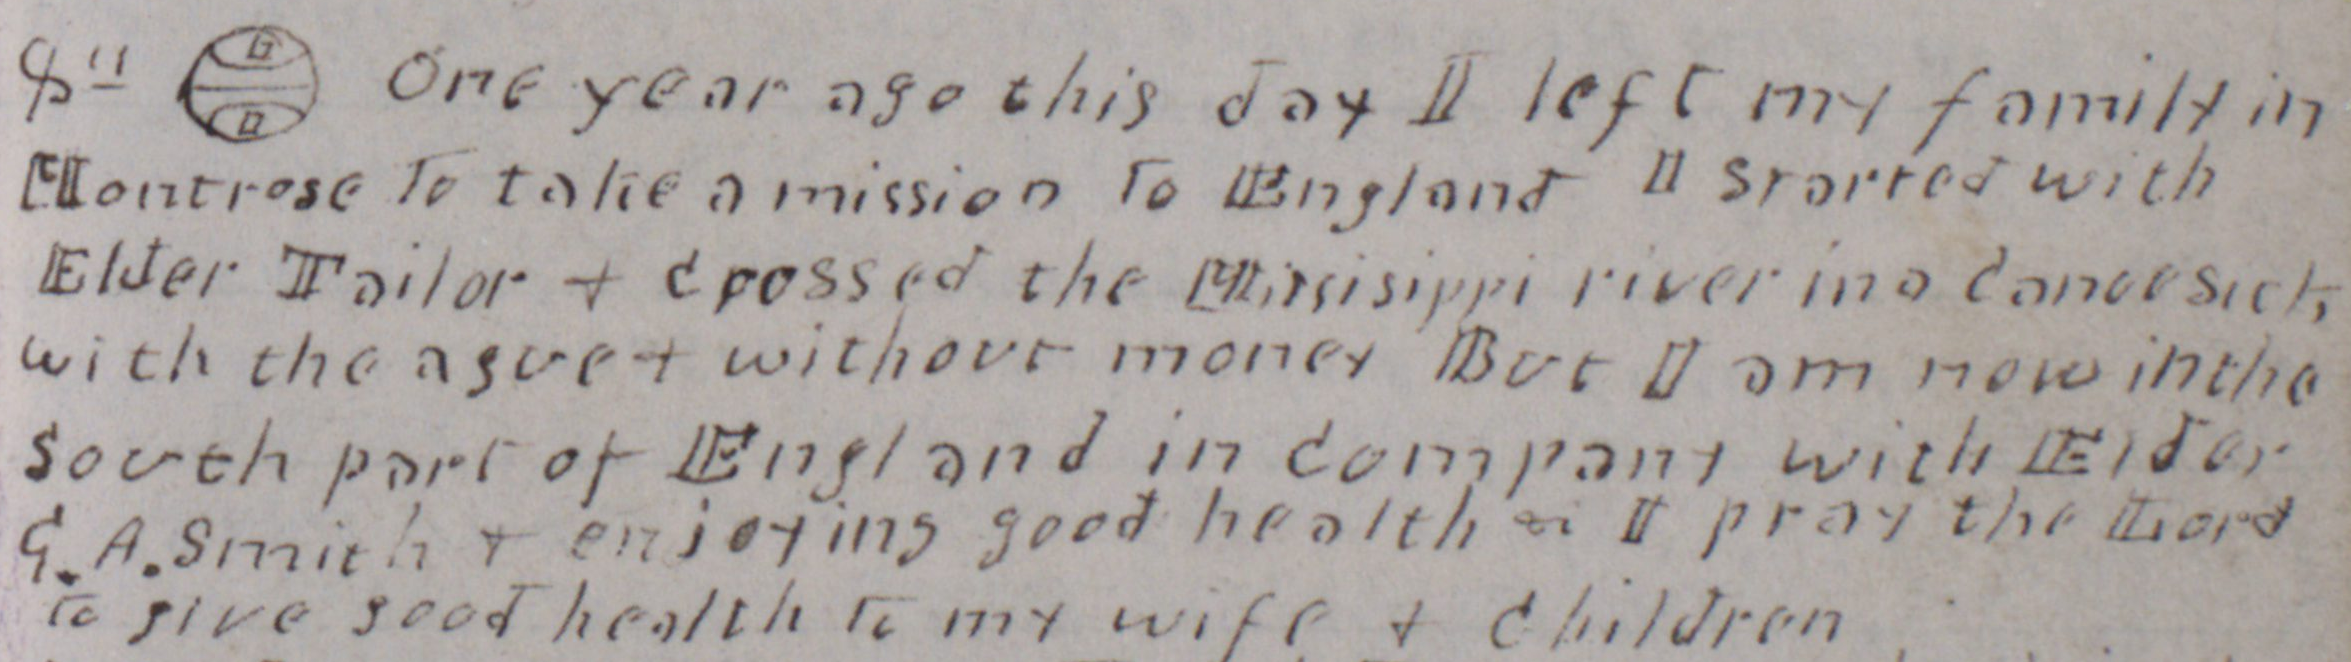 8th One year ago this day I left my family in
Montrose to take a mission to England I started with
Elder Tailor + Crossed the Missisippi river in a Canoe sick
with the ague + without money But I am now in the
South part of England in Company with Elder
G. A. Smith + enjoying good health & I pray the Lord
to give good health to my wife + Children